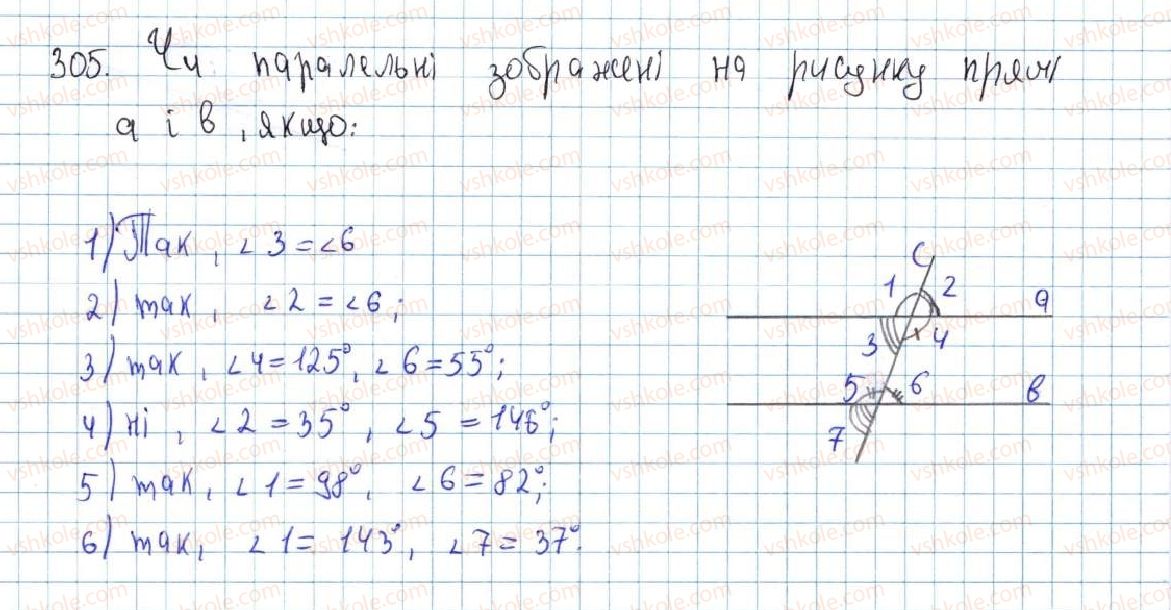 305. Чи паралельні зображені на рисунку прямі
а і в, якщо:
1) Так, ∠3=∠6
2) так, ∠2=∠6;
3) так, ∠4=125°, ∠6=55°;
4) ні, ∠2=35°, ∠5=146°;
5) так, ∠1=98°, ∠6=82°;
6) так, ∠1=143°, ∠7=37°.
C
1 2 a
3 4
5 6 в
7
vshkole.com